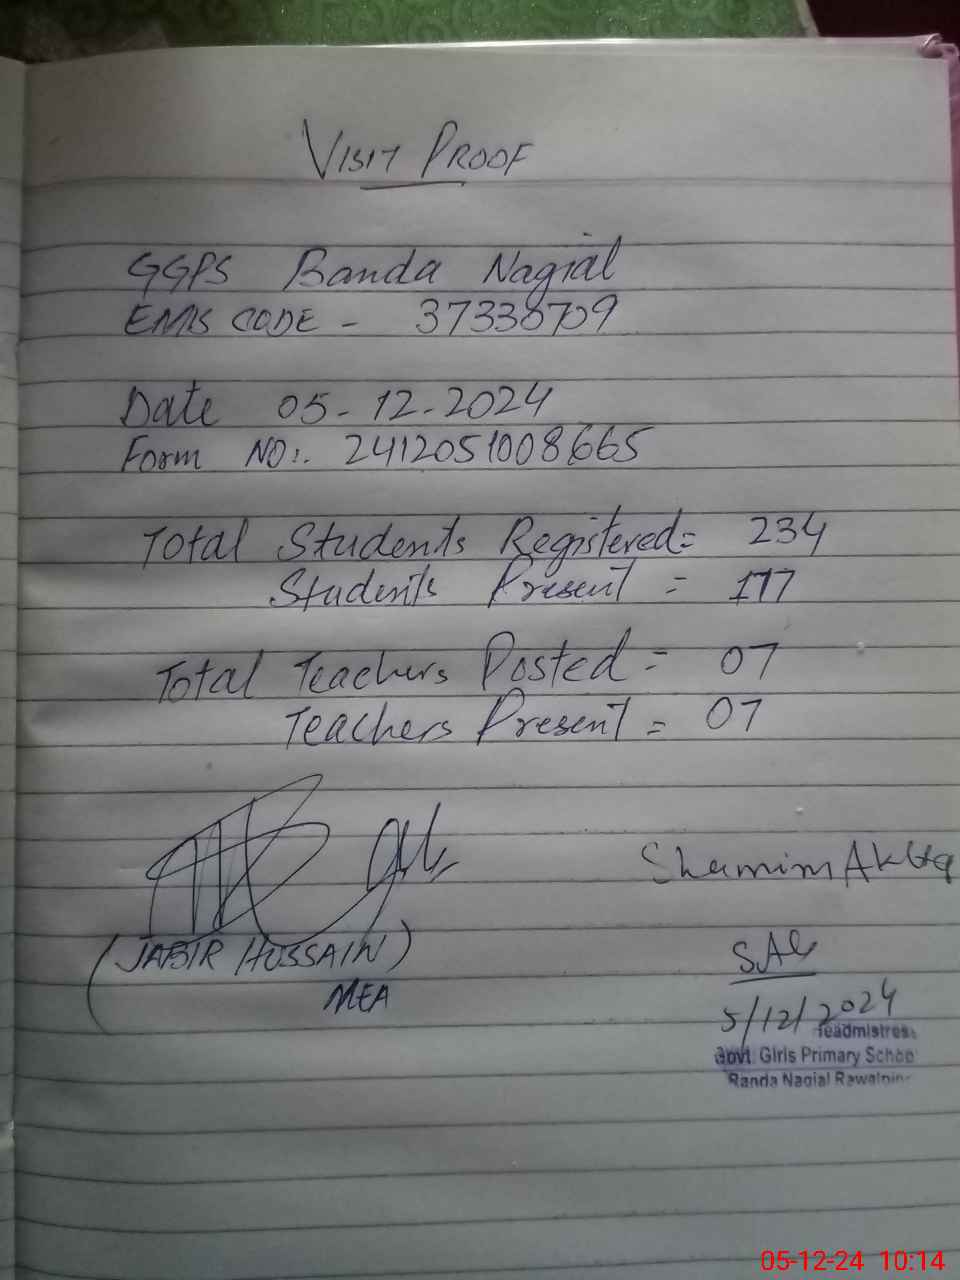 VISIT PROOF
GGPS Banda Nagial
EMIS CODE - 37330709
Date 05-12-2024
Form NO:. 2412051008665
Total Students Registered= 234
Students Present = 177
Total Teachers Posted = 07
Teachers Present = 07
Shamim Akhta
(JABIR HUSSAIN)
MEA
5/12/2024
eadmistres
Govt. Girls Primary Schoo
Banda Nagial Rawalpin
05-12-24 10:14